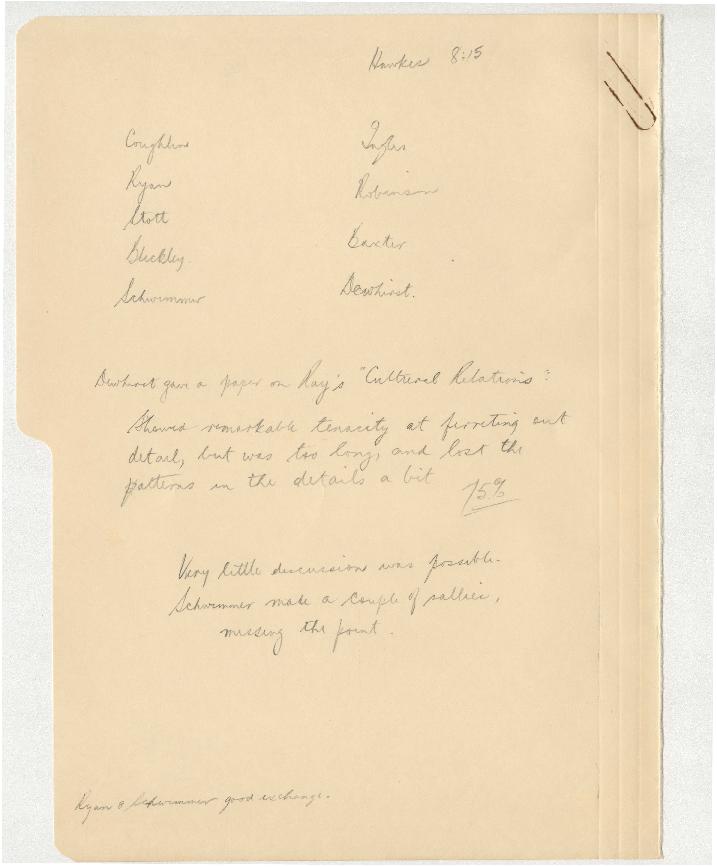 Hawkes 8:15
Coughlin
Ryan
Stott
Bleckley.
Schwimmer
Ingles
Robinson
Baxter
Dewhirst.
Dewhirst gave a paper on Ray's "Cultural Relations":
Showed remarkable tenacity at ferreting out
detail, but was too long, and lost the
patterns in the details a bit
75%
Very little discussion was possible.
Schwimmer made a couple of sallies,
missing the point.
Ryan & Schwimmer good exchange.